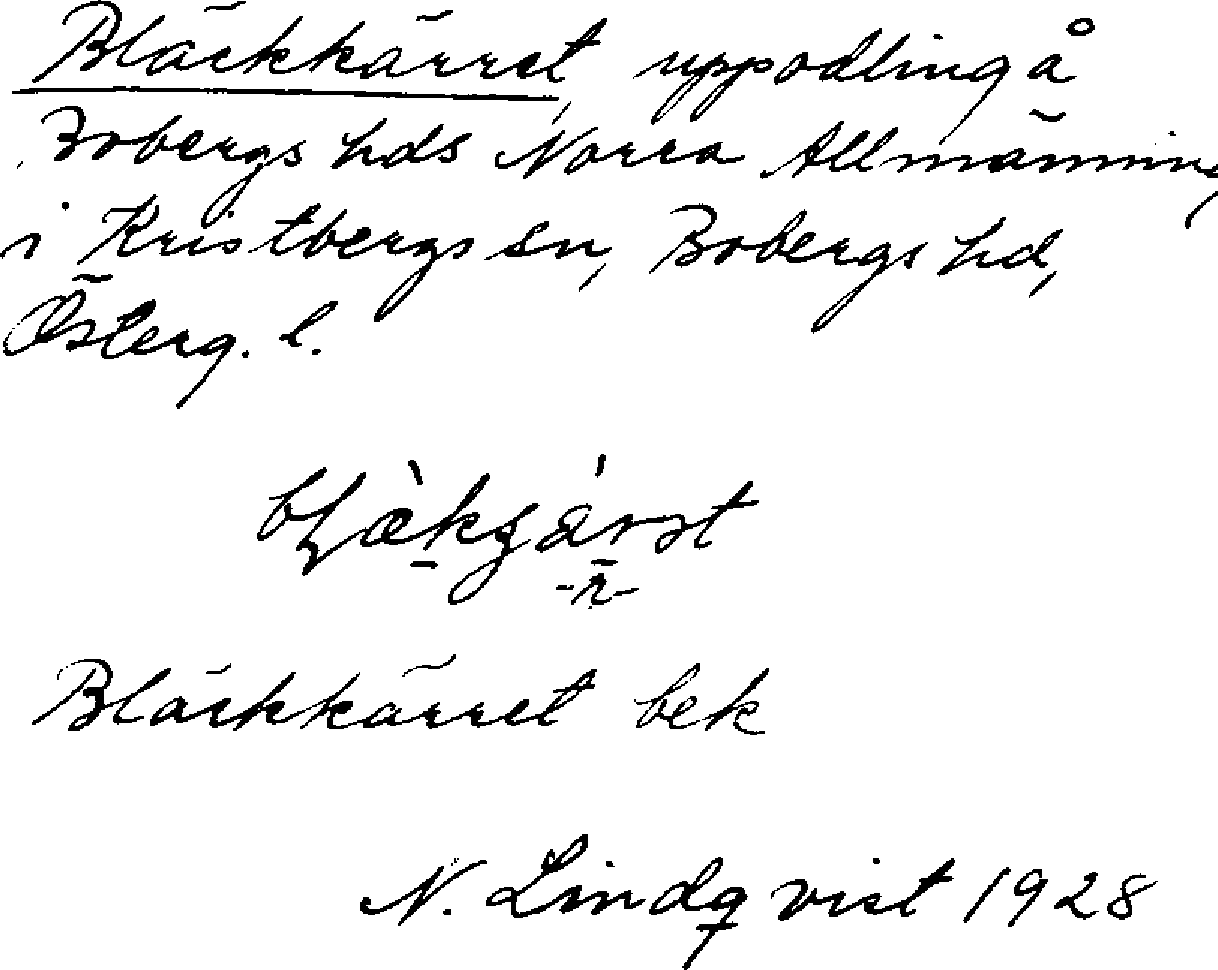 Bläckkärret, uppodling å
Bobergs hds Norra Allmänning
i Kristbergs sn, Bobergs hd,
Österg. l.
-r-
Bläckkärret bek
N. Lindqvist 1928